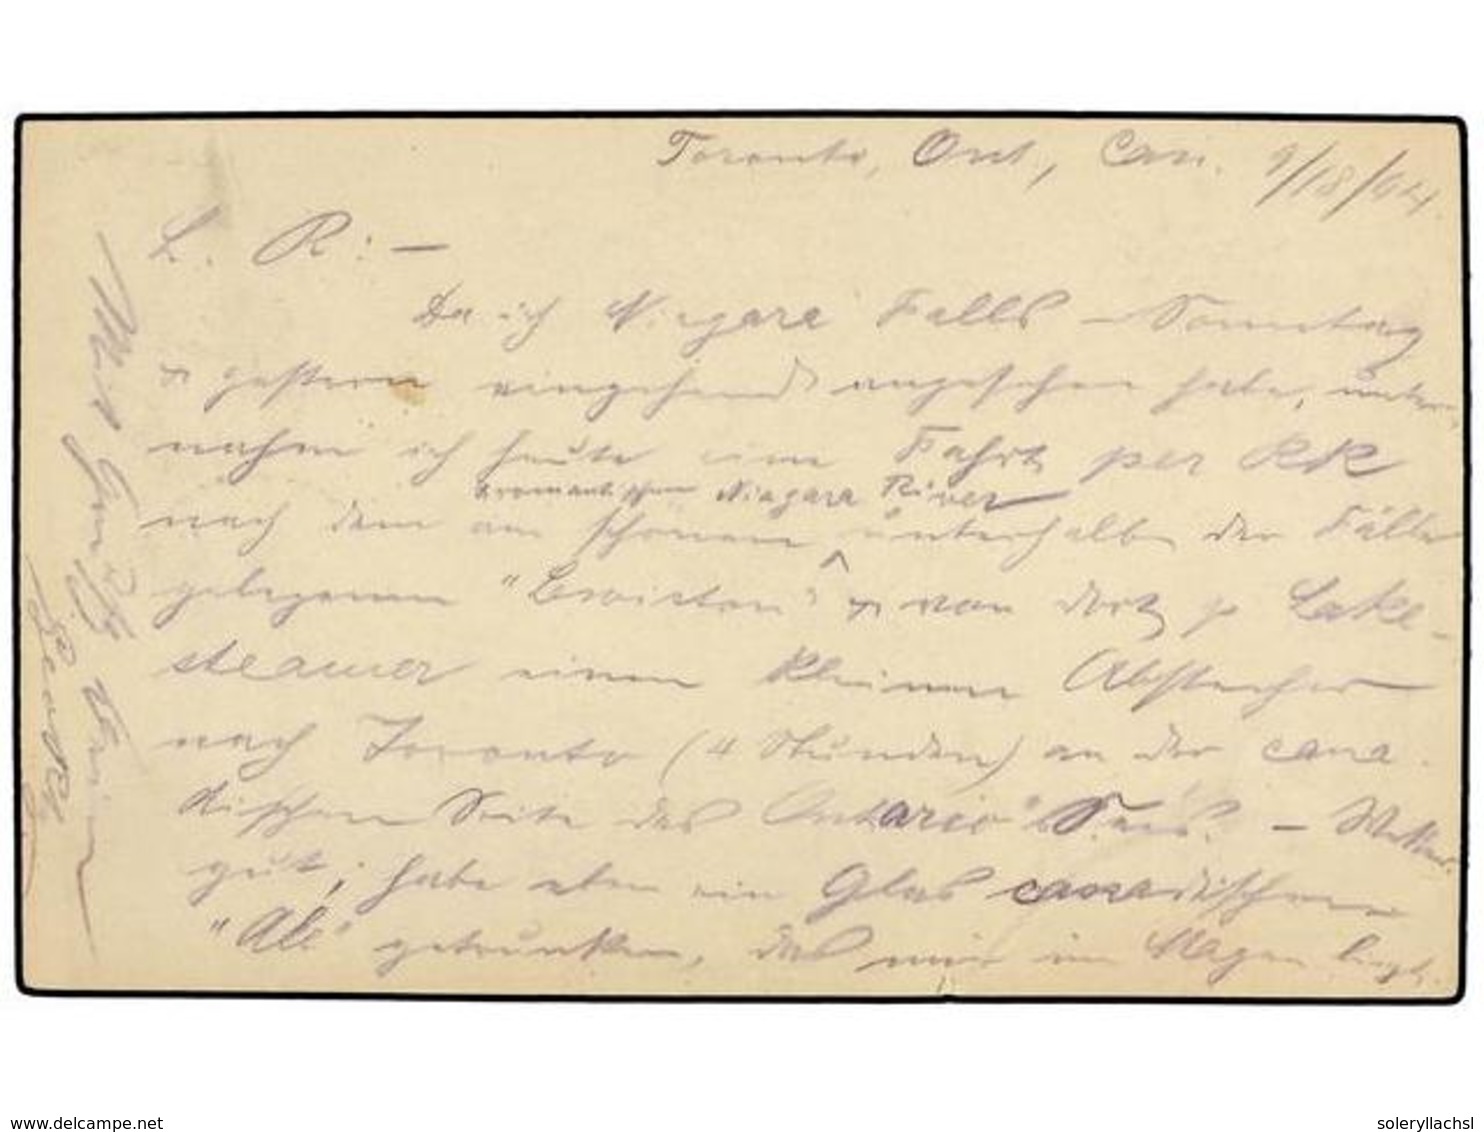 Toronto, Ont., Can. 9/18/94.
L. R.: —
Da ich Niagara Falls – Sonntag
& gestern eingehend angesehen habe, unter-
nahm ich heute eine Fahrt per RR
romantischen Niagara River
nach dem am schönen unterhalb der Fälle
gelegenen "Lewiston" & von dort p Lake-
steamer einen kleinen Abstecher
nach Toronto (4 Stunden) an der cana-
dischen Seite des Ontario Sees. – Wetter
gut; habe eben ein Glas canadischen
"Ale" getrunken, das mir im Magen liegt.
Mit Gruß
delcampe.net
soleryllachsl